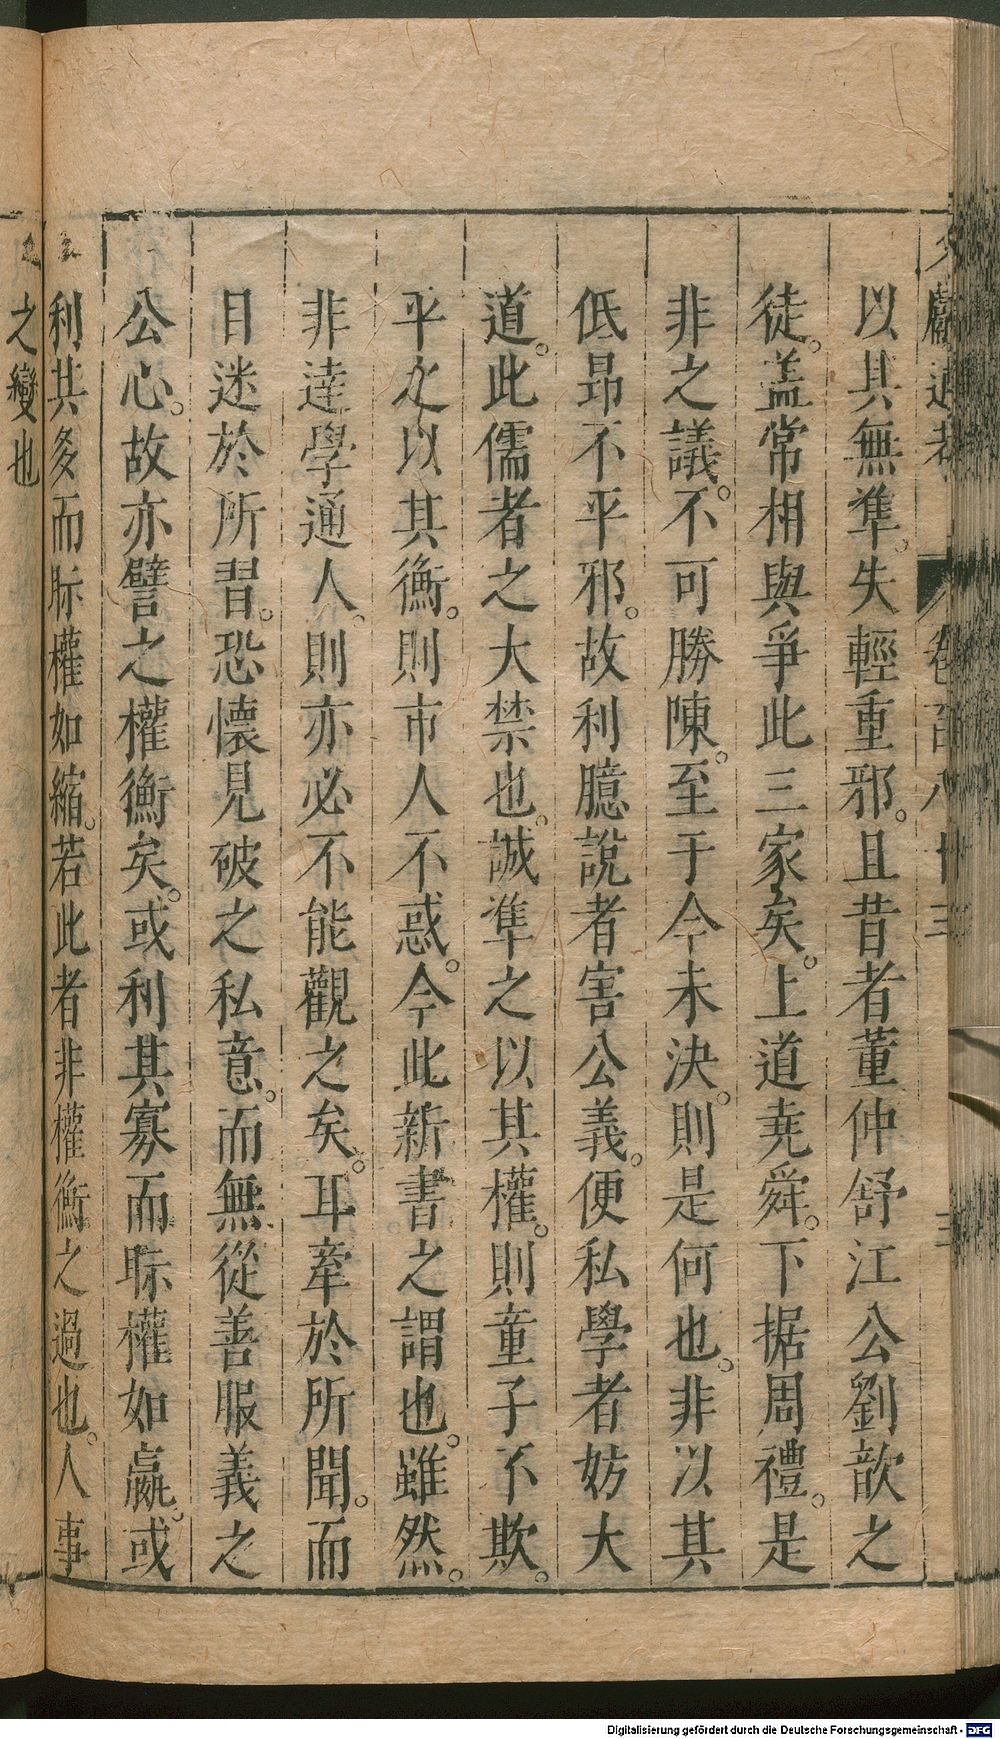 以其無準失輕重邪。且昔者董仲舒江公劉歆之
徒。盖常相與爭此三家矣。上道堯舜。下据周禮。是
非之議。不可勝陳。至于今未決。則是何也。非以其
低昂不平邪。故利臆說者害公義。便私學者妨大
道。此儒者之大禁也。誠準之以其權。則童子不欺。
平之以其衡。則市人不惑。今此新書之謂也。雖然。
非達學通人。則亦必不能觀之矣。耳牽於所聞。而
目迷於所習。恐懷見破之私意。而無從善服義之
公心。故亦譬之權衡矣。或利其寡而眎權如羸。或
利其多而眎權如縮。若此者非權衡之過也。人事
之變也
Digitalisierung gefördert durch die Deutsche Forschungsgemeinschaft - DFG